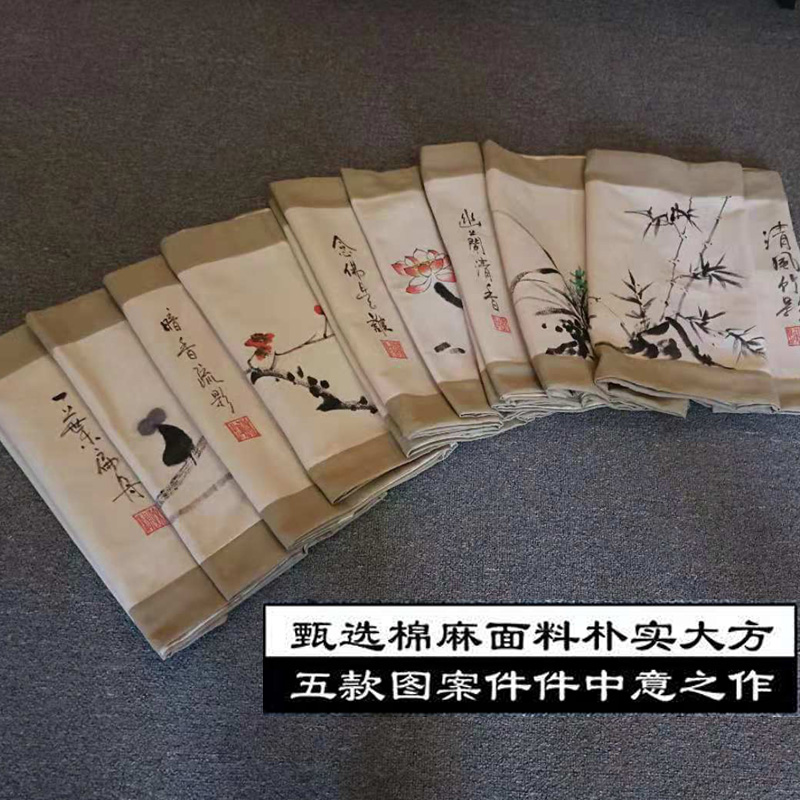 一葉扁舟
暗香疏影
念佛是誰
幽蘭清香
清風竹影
甄选棉麻面料朴实大方
五款图案件件中意之作